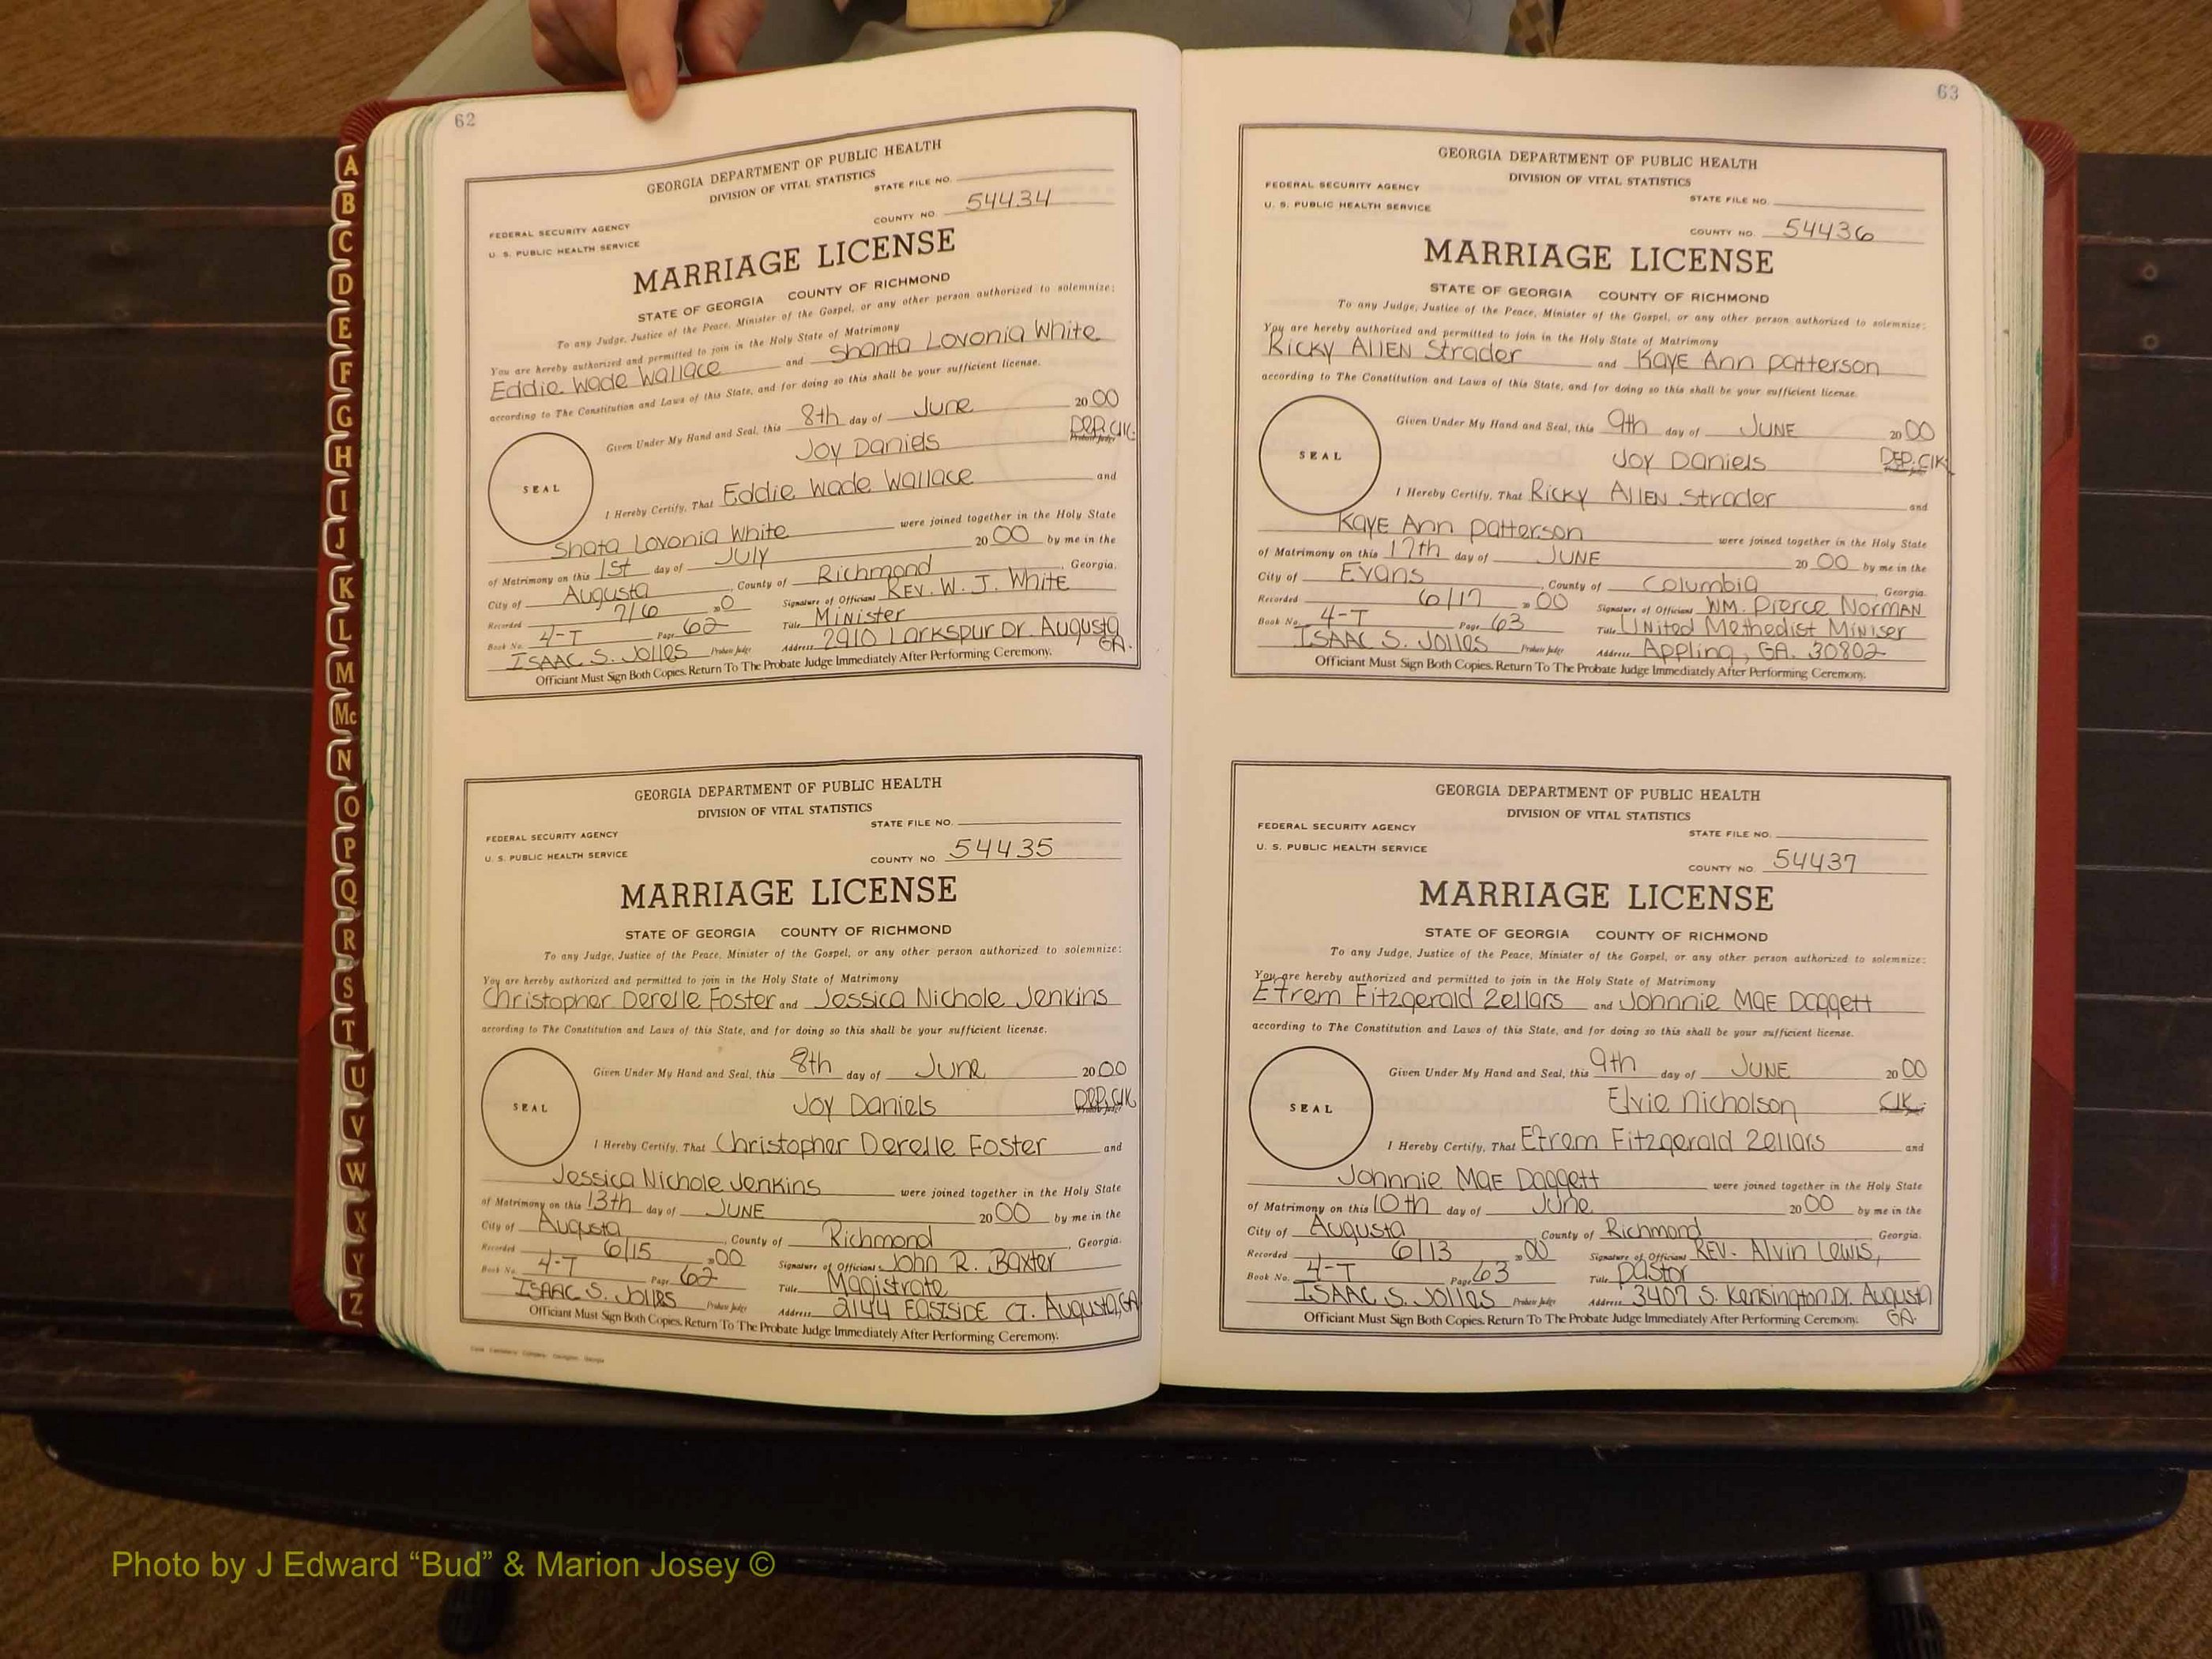 62
GEORGIA DEPARTMENT OF PUBLIC HEALTH
DIVISION OF VITAL STATISTICS
STATE FILE NO.
FEDERAL SECURITY AGENCY
COUNTY NO. 54434
U. S. PUBLIC HEALTH SERVICE
MARRIAGE LICENSE
STATE OF GEORGIA COUNTY OF RICHMOND
To any Judge, Justice of the Peace, Minister of the Gospel, or any other person authorized to solemnize:
You are hereby authorized and permitted to join in the Holy State of Matrimony
Eddie Wade Wallace and Shanta Lovonia White
according to The Constitution and Laws of this State, and for doing so this shall be your sufficient license.
Given Under My Hand and Seal, this 8th day of June 2000
Joy Daniels DEP. CLK.
SEAL
I Hereby Certify, That Eddie Wade Wallace and
Shata Lovonia White were joined together in the Holy State
of Matrimony on this 1st day of July 2000 by me in the
City of Augusta, County of Richmond, Georgia.
Recorded 7/6 20 0 Signature of Officiant Rev. W. J. White
Book No. 4-T Page 62 Title Minister
ISAAC S. Jolles Probate Judge Address 2910 Larkspur Dr. Augusta GA.
Officiant Must Sign Both Copies. Return To The Probate Judge Immediately After Performing Ceremony.
GEORGIA DEPARTMENT OF PUBLIC HEALTH
DIVISION OF VITAL STATISTICS
STATE FILE NO.
FEDERAL SECURITY AGENCY
U. S. PUBLIC HEALTH SERVICE
COUNTY NO. 54435
MARRIAGE LICENSE
STATE OF GEORGIA COUNTY OF RICHMOND
To any Judge, Justice of the Peace, Minister of the Gospel, or any other person authorized to solemnize:
You are hereby authorized and permitted to join in the Holy State of Matrimony
Christopher Derelle Foster and Jessica Nichole Jenkins
according to The Constitution and Laws of this State, and for doing so this shall be your sufficient license.
Given Under My Hand and Seal, this 8th day of June 2000
Joy Daniels DEP. CLK
SEAL
I Hereby Certify, That Christopher Derelle Foster and
Jessica Nichole Jenkins were joined together in the Holy State
of Matrimony on this 13th day of JUNE 2000 by me in the
City of Augusta, County of Richmond, Georgia.
Recorded 6/15 2000 Signature of Officiant John R. Baxter
Book No. 4-T Page 62 Title Magistrate
ISAAC S. Jolles Probate Judge Address 2144 EASTSIDE CT. Augusta, GA
Officiant Must Sign Both Copies. Return To The Probate Judge Immediately After Performing Ceremony.
63
GEORGIA DEPARTMENT OF PUBLIC HEALTH
DIVISION OF VITAL STATISTICS
FEDERAL SECURITY AGENCY
STATE FILE NO.
U. S. PUBLIC HEALTH SERVICE
COUNTY NO. 54436
MARRIAGE LICENSE
STATE OF GEORGIA COUNTY OF RICHMOND
To any Judge, Justice of the Peace, Minister of the Gospel, or any other person authorized to solemnize:
You are hereby authorized and permitted to join in the Holy State of Matrimony
Ricky AllEN Strader and KAYE Ann Patterson
according to The Constitution and Laws of this State, and for doing so this shall be your sufficient license.
Given Under My Hand and Seal, this 9th day of JUNE 2000
Joy Daniels DEP. ClK
SEAL
I Hereby Certify, That Ricky AllEN Strader and
KAYE Ann Patterson were joined together in the Holy State
of Matrimony on this 17th day of JUNE 2000 by me in the
City of Evans, County of Columbia, Georgia.
Recorded 6/17 2000 Signature of Officiant WM. Pierce NORMAN
Book No. 4-T Page 63 Title UNited Methedist Miniser
ISAAC S. Jolles Probate Judge Address Appling, GA. 30802
Officiant Must Sign Both Copies. Return To The Probate Judge Immediately After Performing Ceremony.
GEORGIA DEPARTMENT OF PUBLIC HEALTH
DIVISION OF VITAL STATISTICS
FEDERAL SECURITY AGENCY
STATE FILE NO.
U. S. PUBLIC HEALTH SERVICE
COUNTY NO. 54437
MARRIAGE LICENSE
STATE OF GEORGIA COUNTY OF RICHMOND
To any Judge, Justice of the Peace, Minister of the Gospel, or any other person authorized to solemnize:
You are hereby authorized and permitted to join in the Holy State of Matrimony
Efrem Fitzgerald Zellars and Johnnie MAE Daggett
according to The Constitution and Laws of this State, and for doing so this shall be your sufficient license.
Given Under My Hand and Seal, this 9th day of JUNE 2000
Elvie Nicholson ClK.
SEAL
I Hereby Certify, That Efrem Fitzgerald Zellars and
Johnnie MAE Daggett were joined together in the Holy State
of Matrimony on this 10th day of June 2000 by me in the
City of Augusta County of Richmond Georgia.
Recorded 6/13 2000 Signature of Officiant REV. Alvin Lewis,
Book No. 4-T Page 63 Title Pastor
ISAAC S. Jolles Probate Judge Address 3407 S. Kensington Dr. Augusta GA.
Officiant Must Sign Both Copies. Return To The Probate Judge Immediately After Performing Ceremony.
A
B
C
D
E
F
G
H
I
J
K
L
M
Mc
N
O
P
Q
R
S
T
U
V
W
X
Y
Z
Photo by J Edward “Bud” & Marion Josey ©